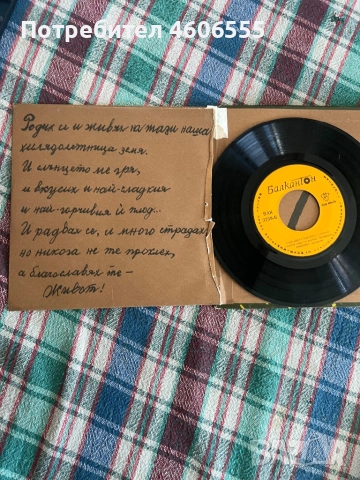 Потребител 4606555
Родих се и живях на тази наша
хилядолетница земя.
И слънцето ме гря,
и вкусих и най-сладкия
и най-горчивия ѝ плод.
И радвах се, и много страдах,
но никога не те проклех,
а благославях те –
Живот!
Балкантон